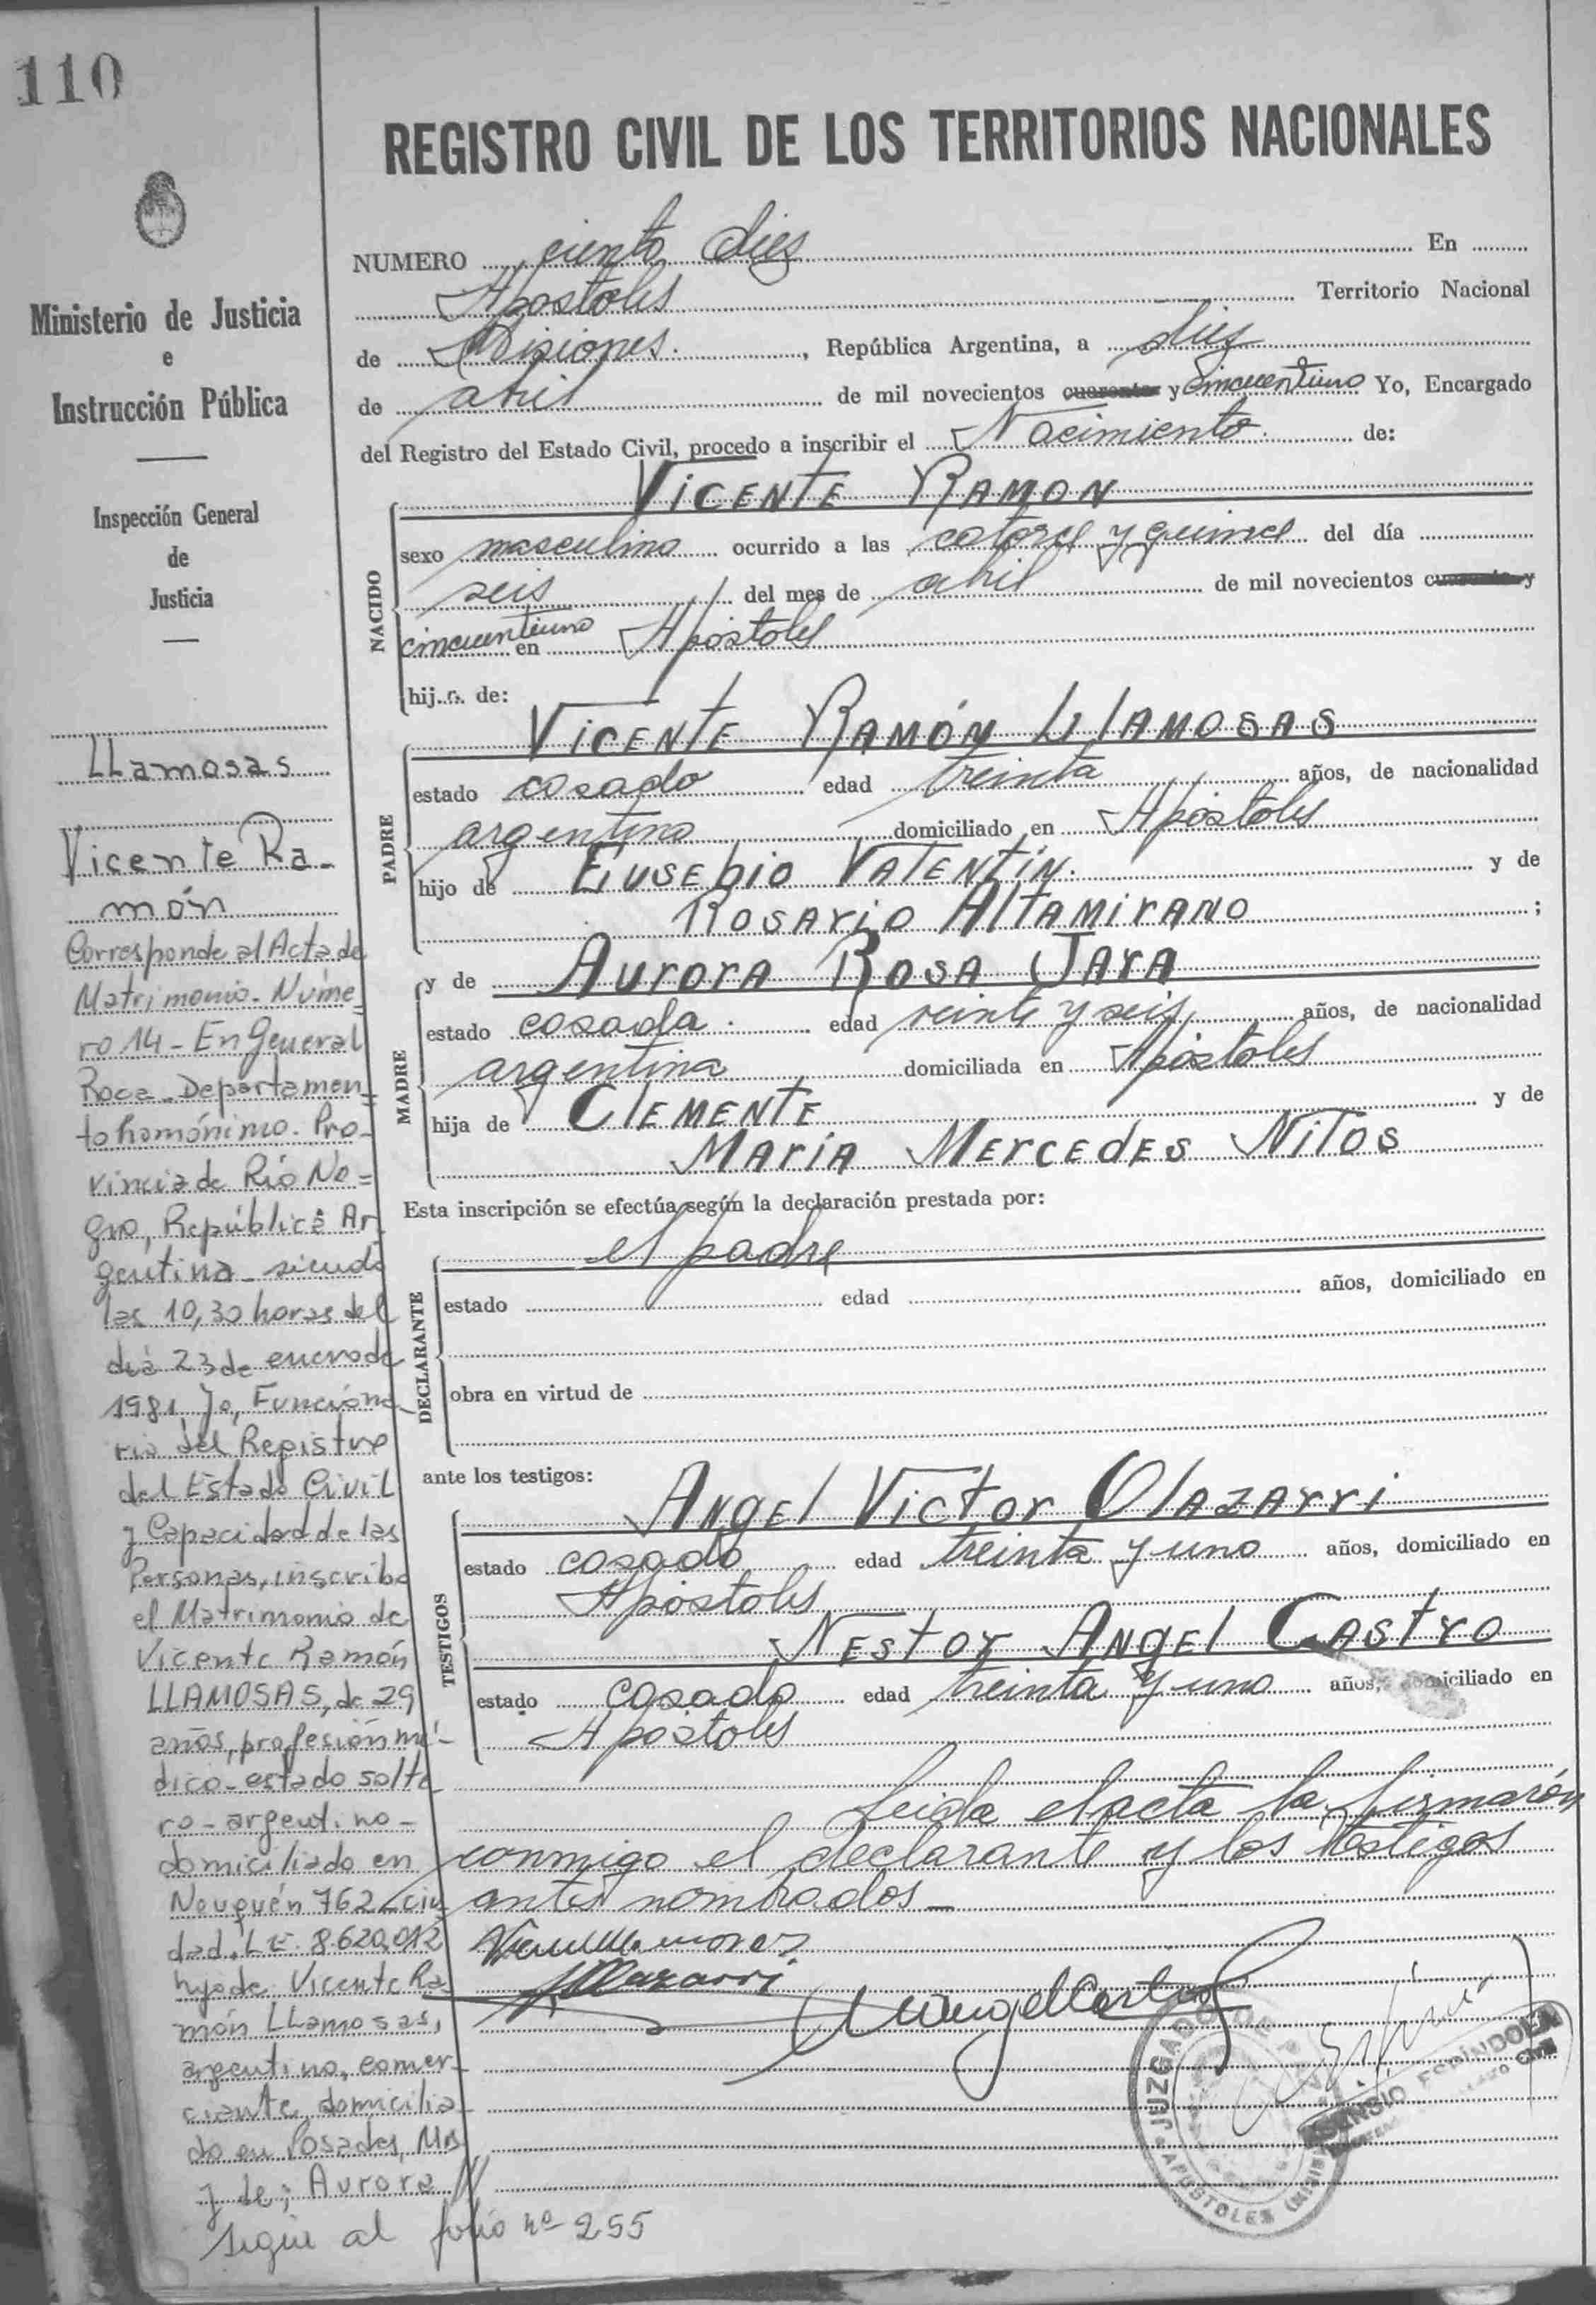 110
REGISTRO CIVIL DE LOS TERRITORIOS NACIONALES
Ministerio de Justicia
e
Instrucción Pública
Inspección General
de
Justicia
LLamosas
Vicente Ra-
món
Corresponde al Acta de
Matrimonio - Núme-
ro 14 - En General
Roca - Departamen-
to homónimo. Pro-
vincia de Río Ne=
gro, República Ar
gentina - siendo
las 10,30 horas del
día 23 de enero de
1981, Yo, Funciona
ria del Registro
del Estado Civil
y Capacidad de las
Personas, inscribo
el Matrimonio de
Vicente Ramón
LLAMOSAS, de 29
años, profesión mé-
dico - estado solte
ro - argentino -
domiciliado en
Neuquén 762 - ciu
dad. L.E. 8.620.012
hijo de Vicente Ra
món LLamosas,
argentino, comer-
ciante, domicilia
do en Posadas, Mns
y de; Aurora //
sigue al folio nº 255
NUMERO ciento dies En
Apostoles Territorio Nacional
de Misiones. , República Argentina, a dies
de abril de mil novecientos cuarenta y cincuentiuno Yo, Encargado
del Registro del Estado Civil, procedo a inscribir el Nacimiento de:
NACIDO
VICENTE RAMON
sexo masculino ocurrido a las catorce y quince del día
seis del mes de abril de mil novecientos cuarenta y
cincuentiuno en Apóstoles
hij o de:
PADRE
VICENTE RAMÓN LLAMOSAS
estado casado edad treinta años, de nacionalidad
argentina domiciliado en Apóstoles
hijo de EUSEbio VALENTÍN. y de
ROSARIO AltAMIRANO ;
MADRE
y de AURORA ROSA JARA
estado casada. edad veinte y seis años, de nacionalidad
argentina domiciliada en Apóstoles
hija de ClEMENTE y de
MARÍA MERCEdES NILOS
Esta inscripción se efectúa según la declaración prestada por:
DECLARANTE
el padre
estado edad años, domiciliado en
obra en virtud de
ante los testigos:
TESTIGOS
ANGEl VICtOR OlAZARRi
estado casado edad treinta y uno años, domiciliado en
Apóstoles
NEStOR ANGEl CAStRO
estado casado edad treinta y uno años, domiciliado en
Apóstoles
Leida el acta la firmarón
conmigo el declarante y los testigos
antes nombrados -
JUZGADO DE PAZ
APOSTOLES